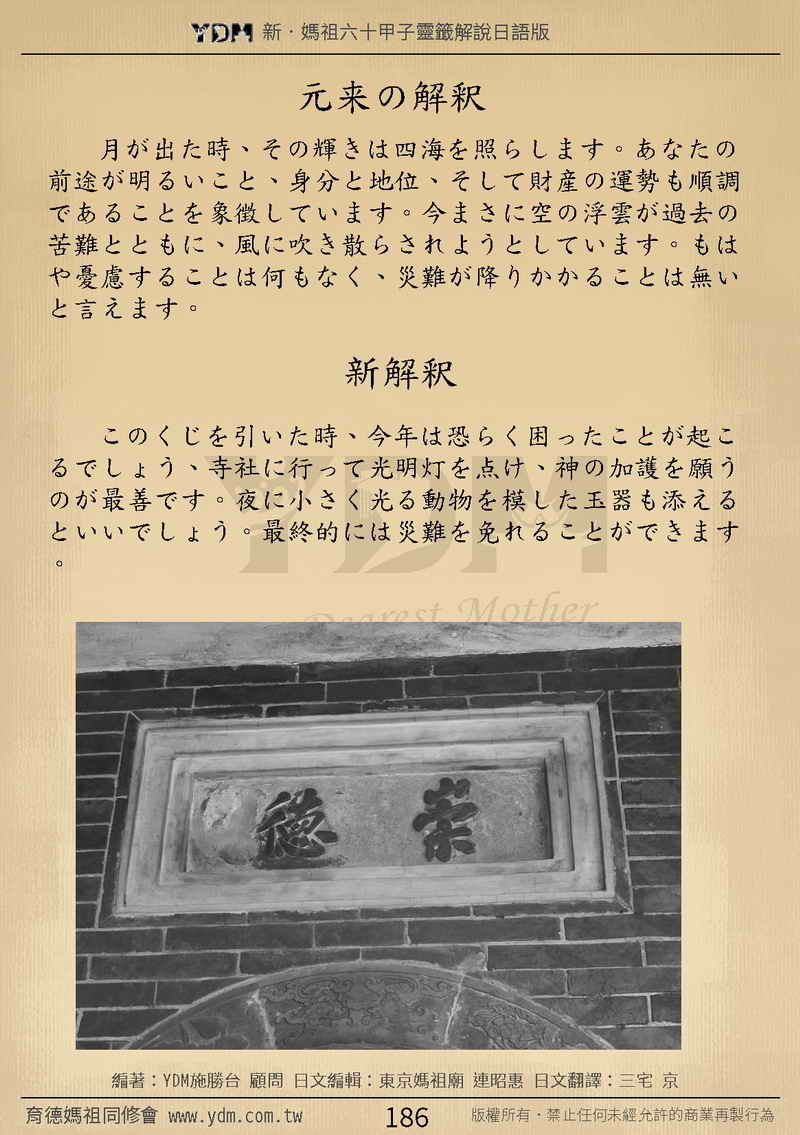 YDM 新．媽祖六十甲子靈籤解說日語版
元来の解釈
月が出た時、その輝きは四海を照らします。あなたの
前途が明るいこと、身分と地位、そして財産の運勢も順調
であることを象徴しています。今まさに空の浮雲が過去の
苦難とともに、風に吹き散らされようとしています。もは
や憂慮することは何もなく、災難が降りかかることは無い
と言えます。
新解釈
このくじを引いた時、今年は恐らく困ったことが起こ
るでしょう、寺社に行って光明灯を点け、神の加護を願う
のが最善です。夜に小さく光る動物を模した玉器も添える
といいでしょう。最終的には災難を免れることができます
。
YDM
Dearest Mother
崇德
編著：YDM施勝台 顧問 日文編輯：東京媽祖廟 連昭惠 日文翻譯：三宅 京
育德媽祖同修會 www.ydm.com.tw 186 版權所有．禁止任何未經允許的商業再製行為